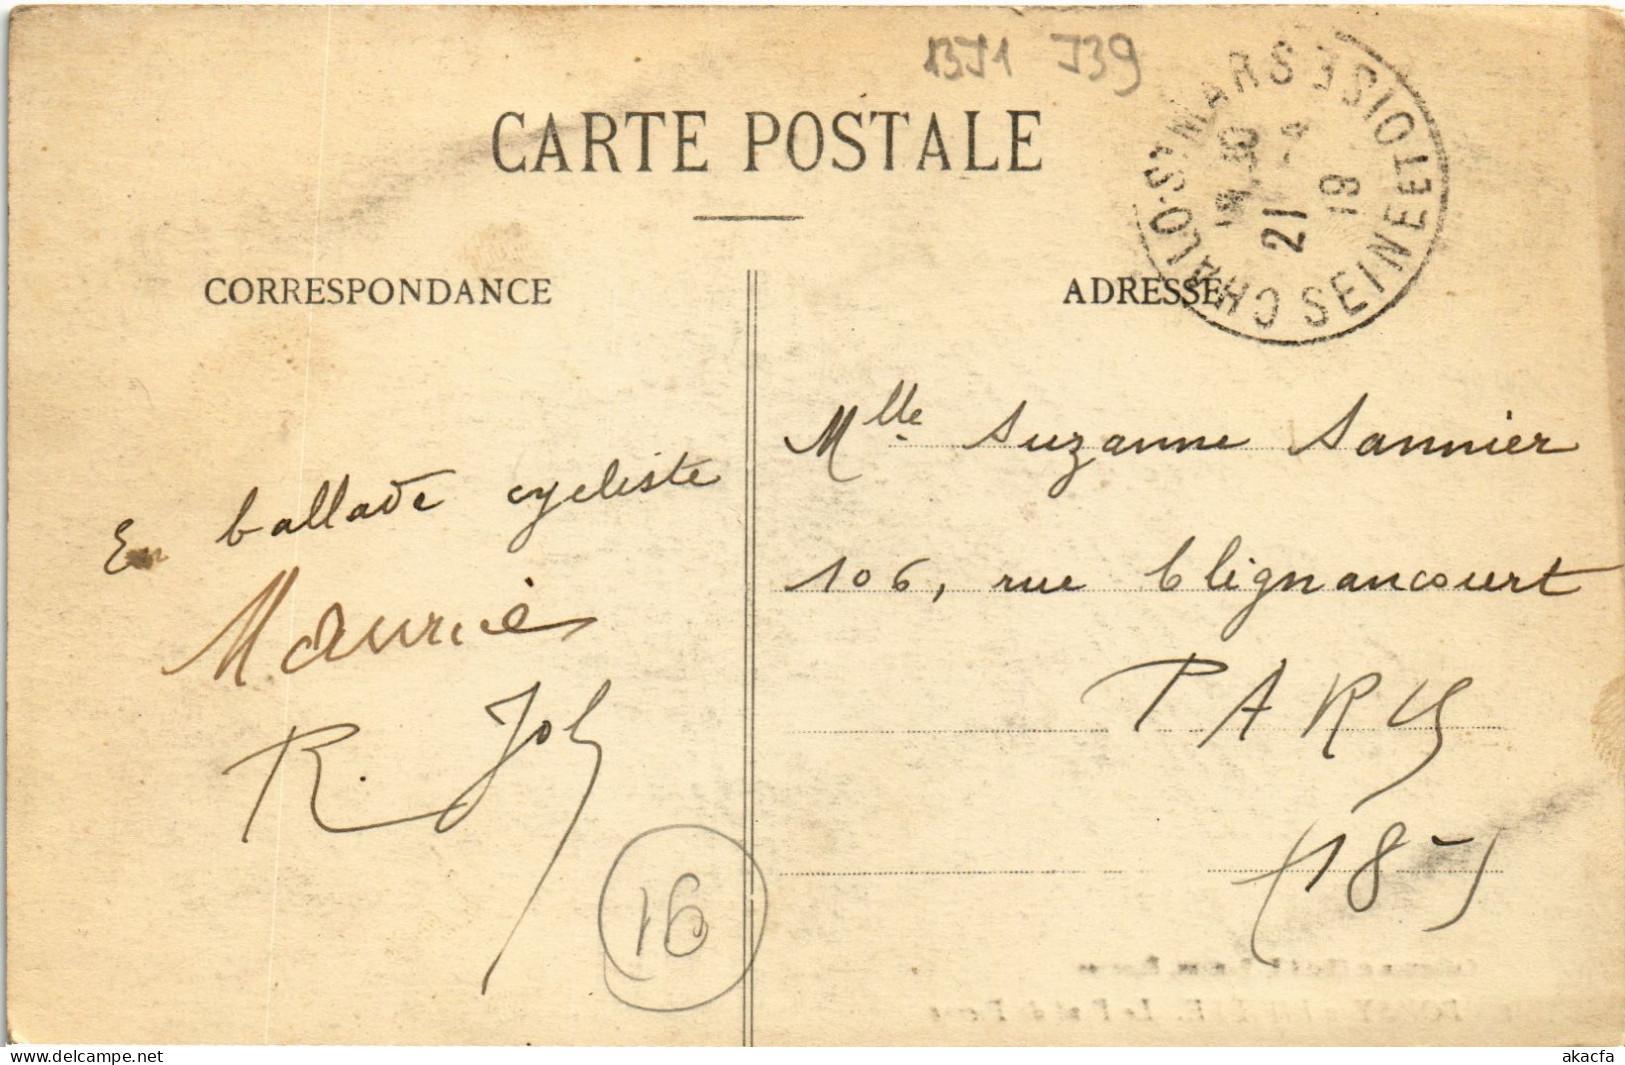 13J1 J39
CARTE POSTALE
CHALO-ST MARS
SEINE ET OISE
21 - 4
19
CORRESPONDANCE
ADRESSE
En ballade cycliste
Maurice
R. Joly
Mlle Suzanne Sannier
106, rue Clignancourt
PARIS
(18-)
16
akacfa